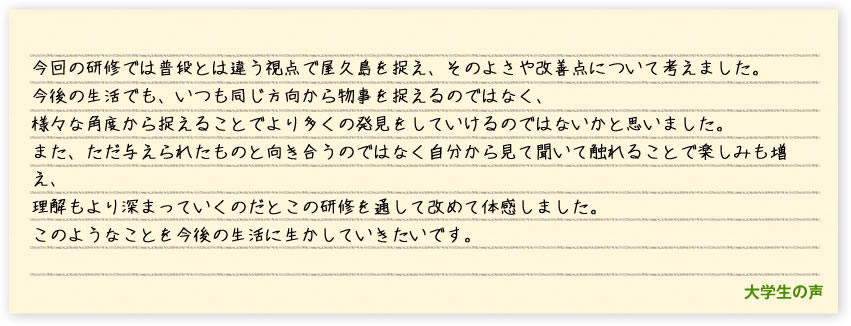 今回の研修では普段とは違う視点で屋久島を捉え、そのよさや改善点について考えました。
今後の生活でも、いつも同じ方向から物事を捉えるのではなく、
様々な角度から捉えることでより多くの発見をしていけるのではないかと思いました。
また、ただ与えられたものと向き合うのではなく自分から見て聞いて触れることで楽しみも増
え、
理解もより深まっていくのだとこの研修を通して改めて体感しました。
このようなことを今後の生活に生かしていきたいです。
大学生の声